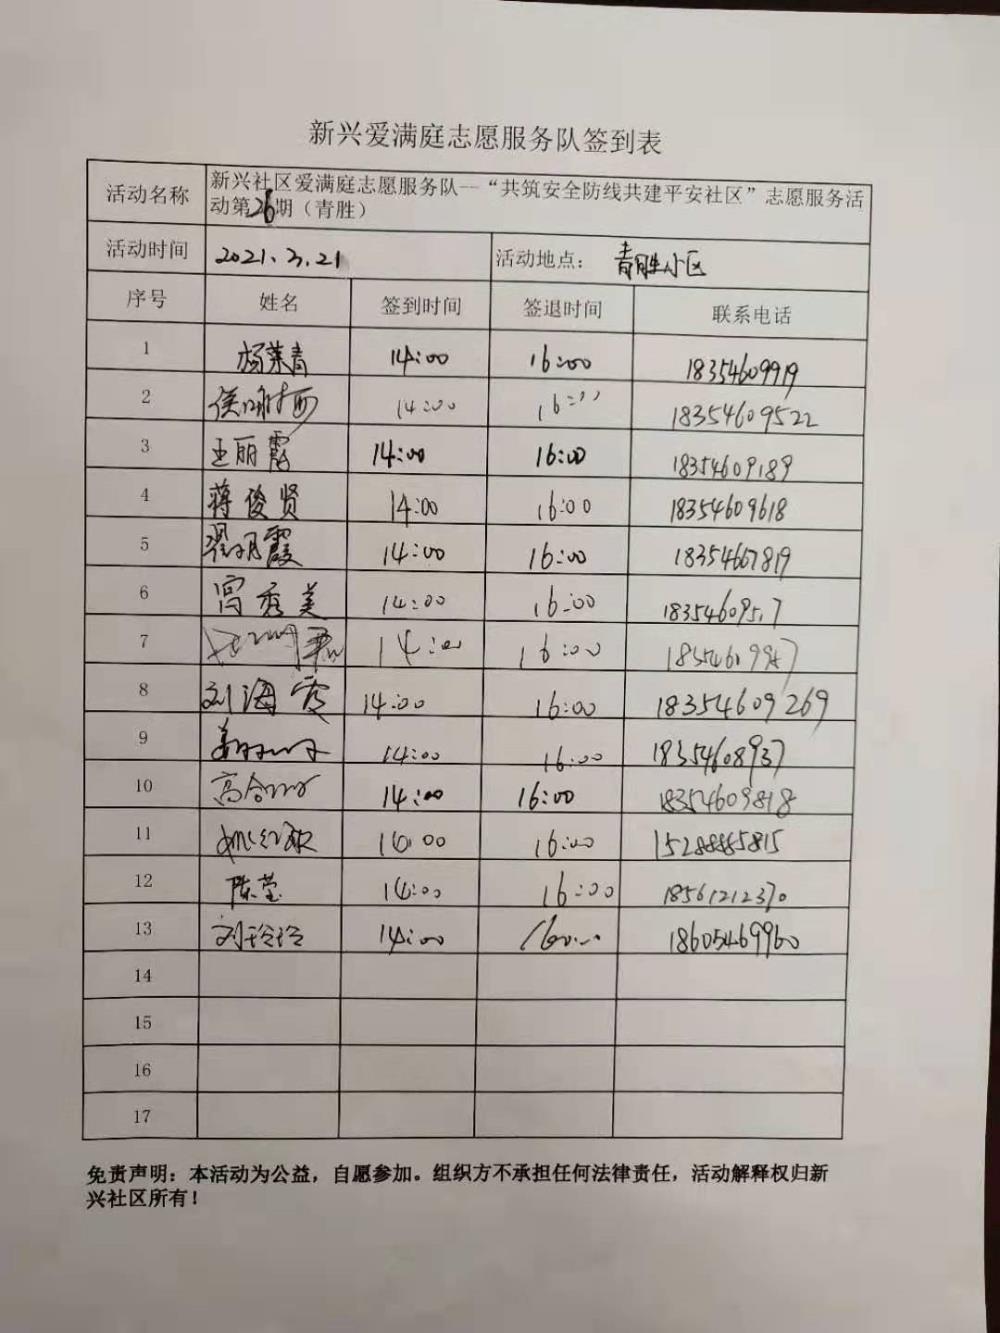 新兴爱满庭志愿服务队签到表
活动名称 新兴社区爱满庭志愿服务队--“共筑安全防线共建平安社区”志愿服务活
动第26期（青胜）
活动时间 2021.3.21 活动地点： 青胜小区
序号 姓名 签到时间 签退时间 联系电话
1 杨荣青 14:00 16:00 18354609919
2 14:00 16:00 18354609522
3 王丽霞 14:00 16:00 18354609189
4 蒋俊贤 14:00 16:00 18354609618
5 翟明霞 14:00 16:00 18354667819
6 宫秀美 14:00 16:00
7 14:00 16:00
8 刘海霞 14:00 16:00 18354609269
9 14:00 16:00 18354608937
10 14:00 16:00 18354609818
11 16:00 15288885815
12 陈莹 14:00 16:00 18561212370
13 刘玲玲 14:00 16:00 18605469960
14
15
16
17
免责声明：本活动为公益，自愿参加。组织方不承担任何法律责任，活动解释权归新
兴社区所有！